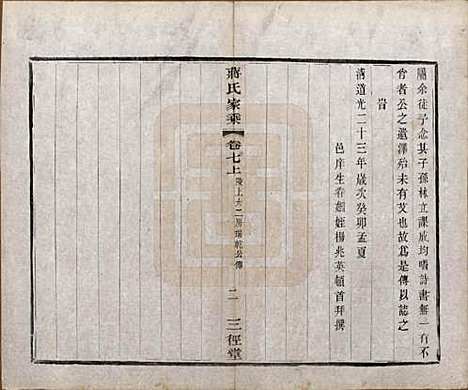 屬余徒予念其子孫林立課欣均嗜詩書無一有不
肯者公之遺澤殆未有艾也故為是傳以誌之
旹
清道光二十三年歲次癸卯孟夏
邑庠生眷姻姪楊兆英頓首拜撰
蔣氏家乘
卷七上
公傳
二
三徑堂